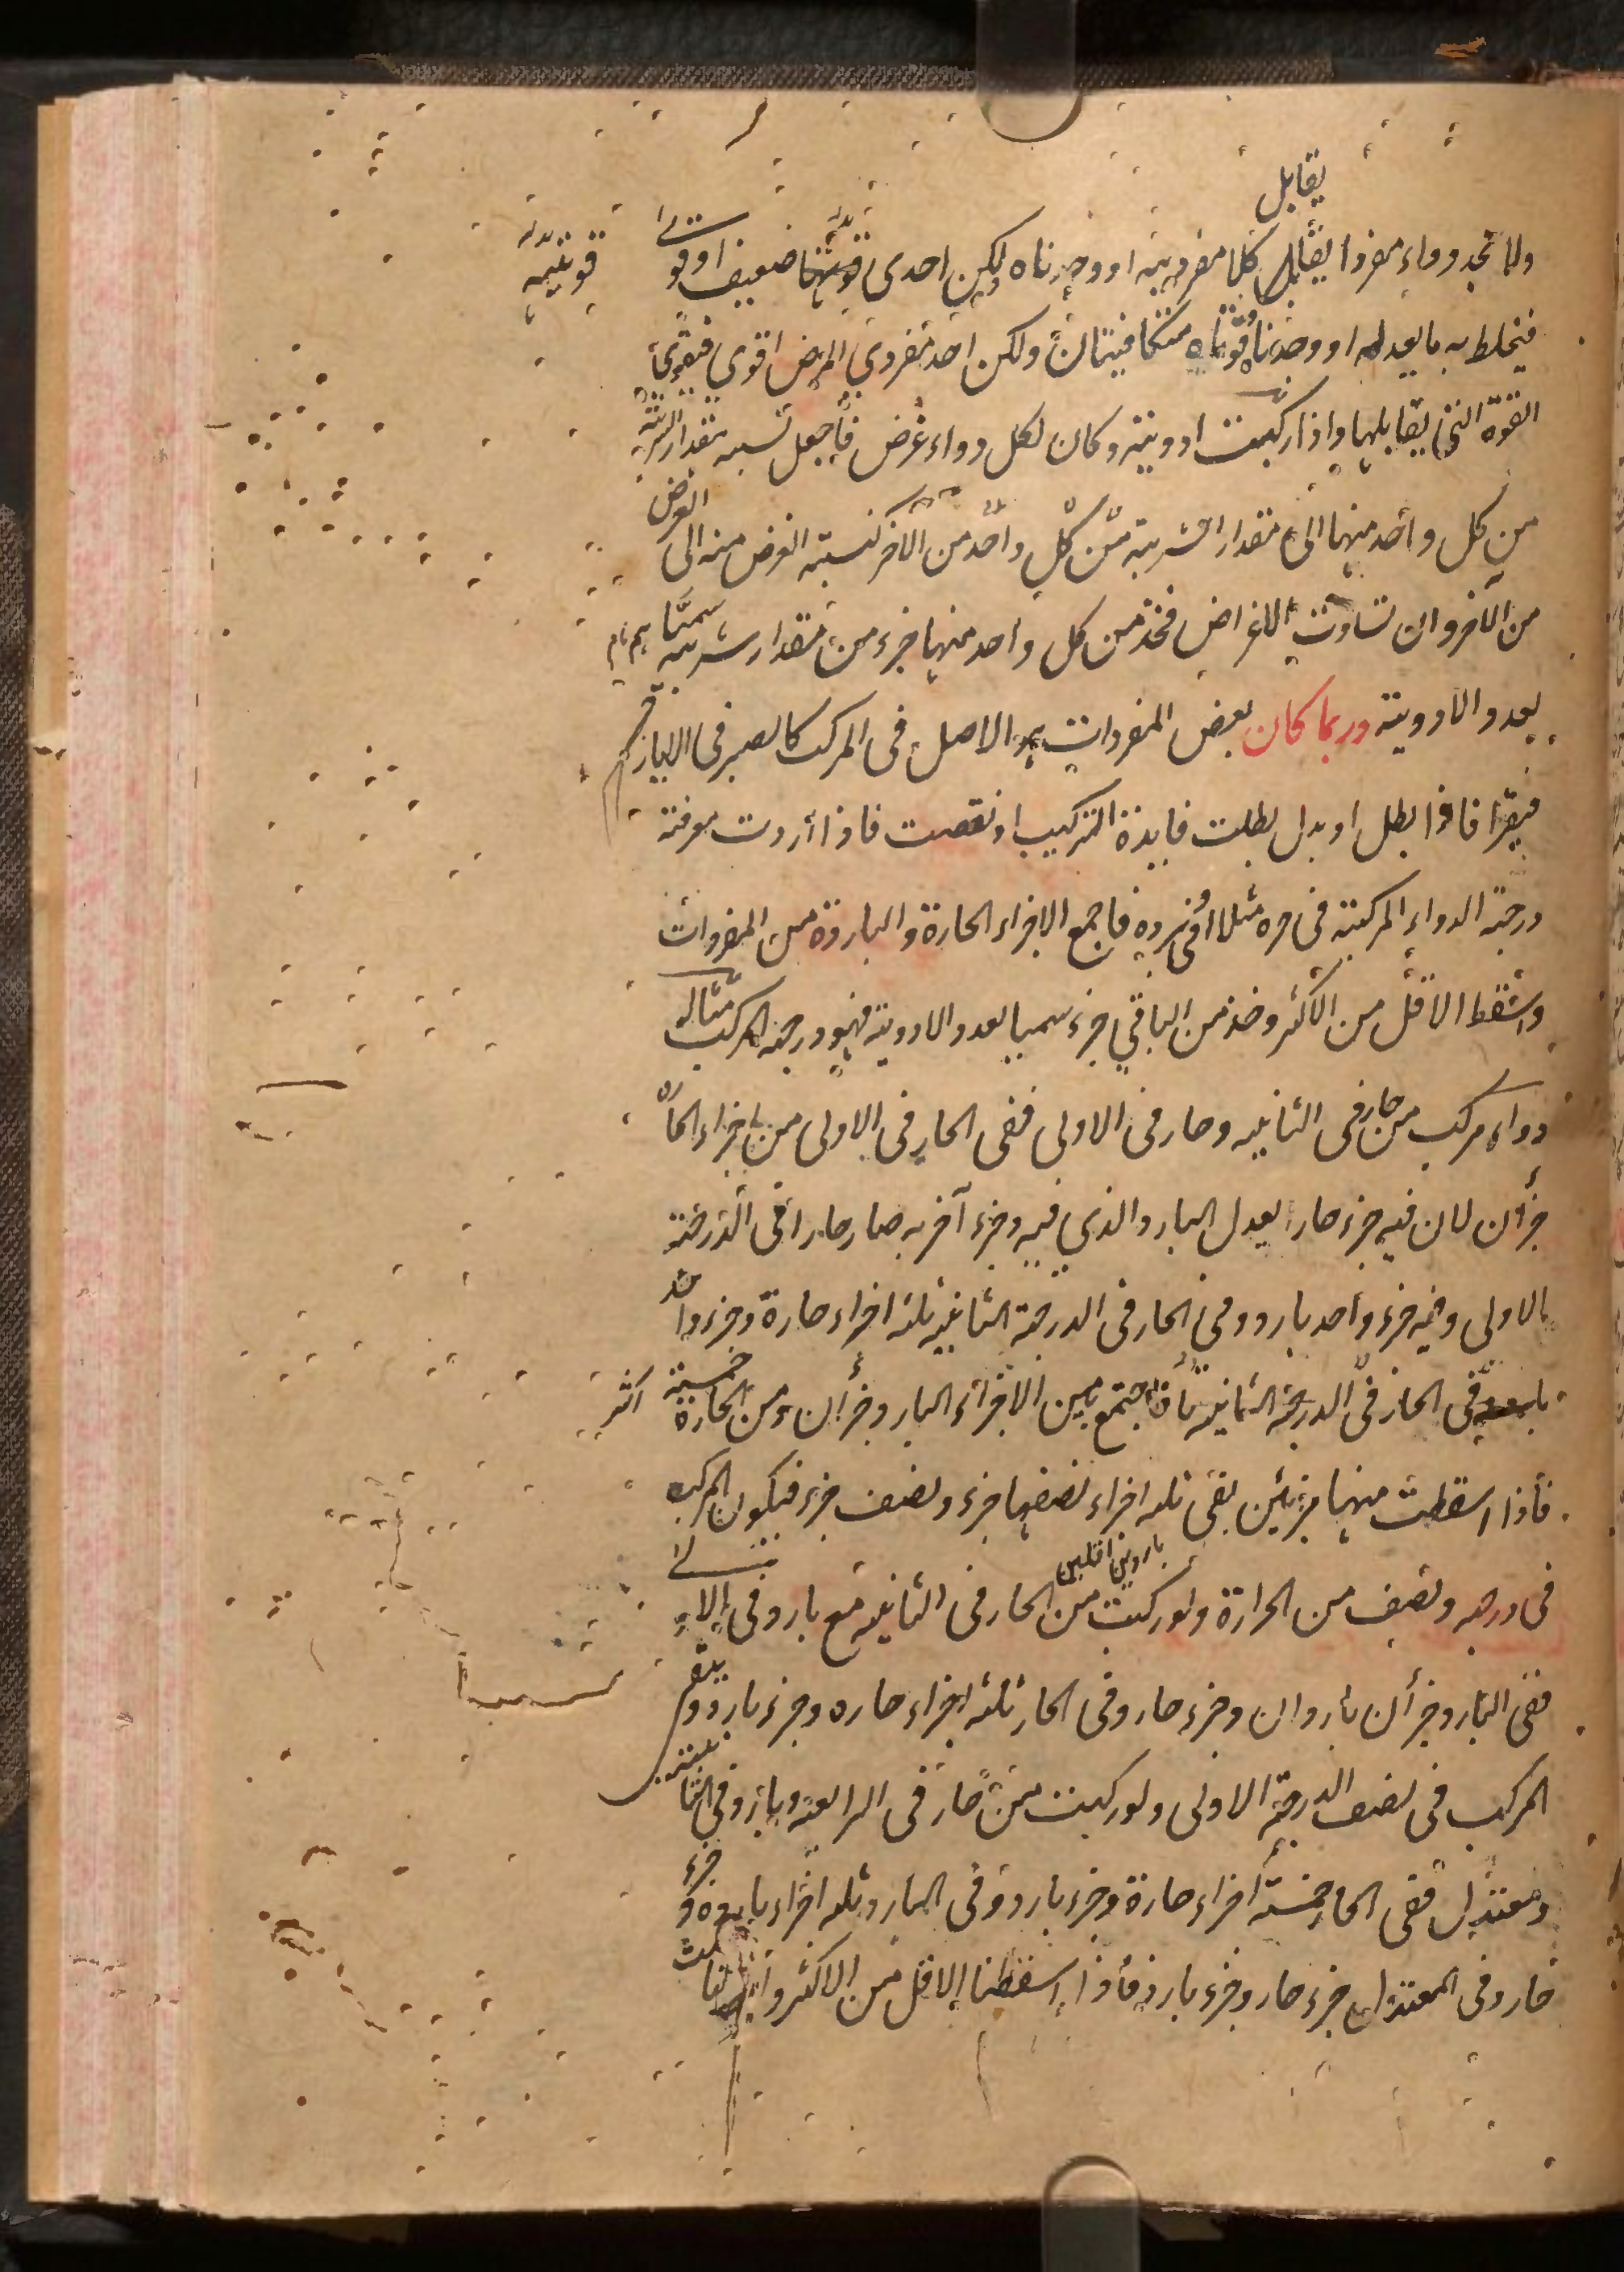 يقابل
ولا نجد دواء مفردا يقابل كلا مفرديه او وجدناه لكن احدى قوتيه ضعيف او قو
قوتيه
فيخلط به ما يعدله او وجدناه قوتاه متكافيتان ولكن احد مفردي المرض اقوى فيقوى
القوة التي يقابلها واذا ركبت ادوية وكان لكل دواء غرض فاجعل نسبه مقدار الشربة
من كل واحد منها الى مقدار الشربة من كل واحد من الآخر كنسبة الغرض منه الى الغرض
من الآخر وان تساوت الاغراض فخذ من كل واحد منها جزء من مقدار شربته سميا
بعدد الادوية وربما كان بعض المفردات هو الاصل فى المركب كالصبر فى اللايارج
فيقرا فاذا بطل او بدل بطلت فايدة التركيب او نقصت فاذا اردت معرفة
درجة الدواء المركبة فى حره مثلا او فى برده فاجمع الاجزاء الحارة والباردة من المفردات
واسقط الاقل من الاكثر وخذ من الباقي جزء سميا لعدد الادوية فهو درجة المركب مثاله
دواء مركب من حار فى الثانيه وحار فى الاولى ففى الحار فى الاولى من اجزاء الحارة
جزأن لان فيه جزء حار يعدل البارد الذي فيه وجزء آخر به صار حارا فى الدرجة
الاولى وفيه جزء واحد بارد وفى الحار فى الدرجة الثانيه ثلثه اجزاء حارة وجزء واحد
فى الحار فى الدرجة الثانية فاجتمع من الاجزاء البارد جزأن ومن الحارة خمسة
فاذا اسقطت منها جزئين بقى ثلثه اجزاء نصفها جزء ونصف جزء فيكون المركب
فى درجه ونصف من الحرارة ولو ركبت من الحار فى الثانيه مع بارد فى الاولى
ففى البارد جزأن باردان وجزء حار وفى الحار ثلثه اجزاء حاره وجزء بارد ويبقى
المركب فى نصف الدرجة الاولى ولو ركبت من حار فى الرابعة وبارد فى الثانية
ومعتدل ففى الحار خمسة اجزاء حارة وجزء بارد وفى البارد ثلثه اجزاء باردة وجزء
حار وفى المعتدل جزء حار وجزء بارد فاذا اسقطنا الاقل من الاكثر